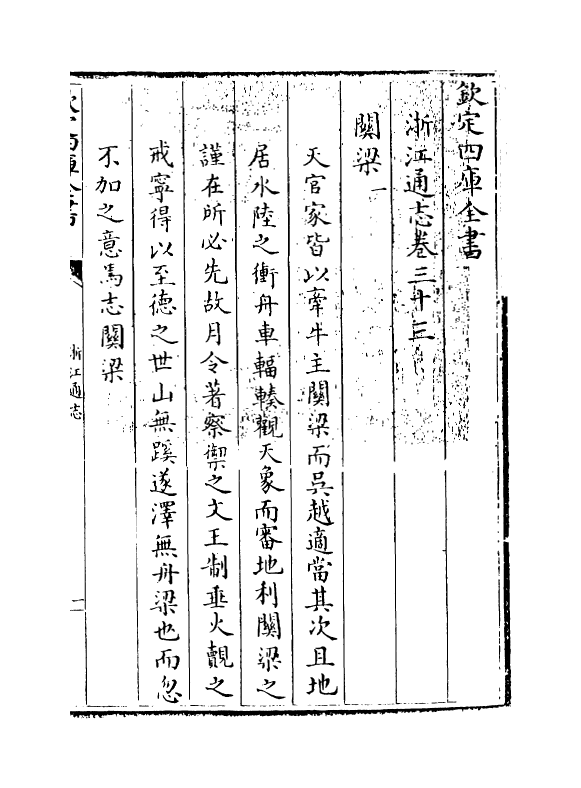 欽定四庫全書
浙江通志卷三十三
關梁一
天官家皆以牽牛主關梁而吳越適當其次且地
居水陸之衝舟車輻輳觀天象而審地利關梁之
謹在所必先故月令著察禦之文王制垂火覿之
戒寧得以至德之世山無蹊遂澤無舟梁也而忽
不加之意焉志關梁
浙江通志